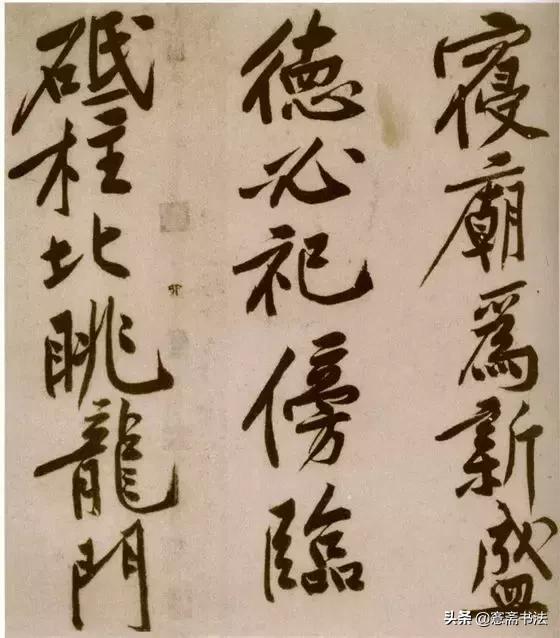 寢廟爲新盛
德必祀傍臨
砥柱北眺龍門
头条 @意斋书法